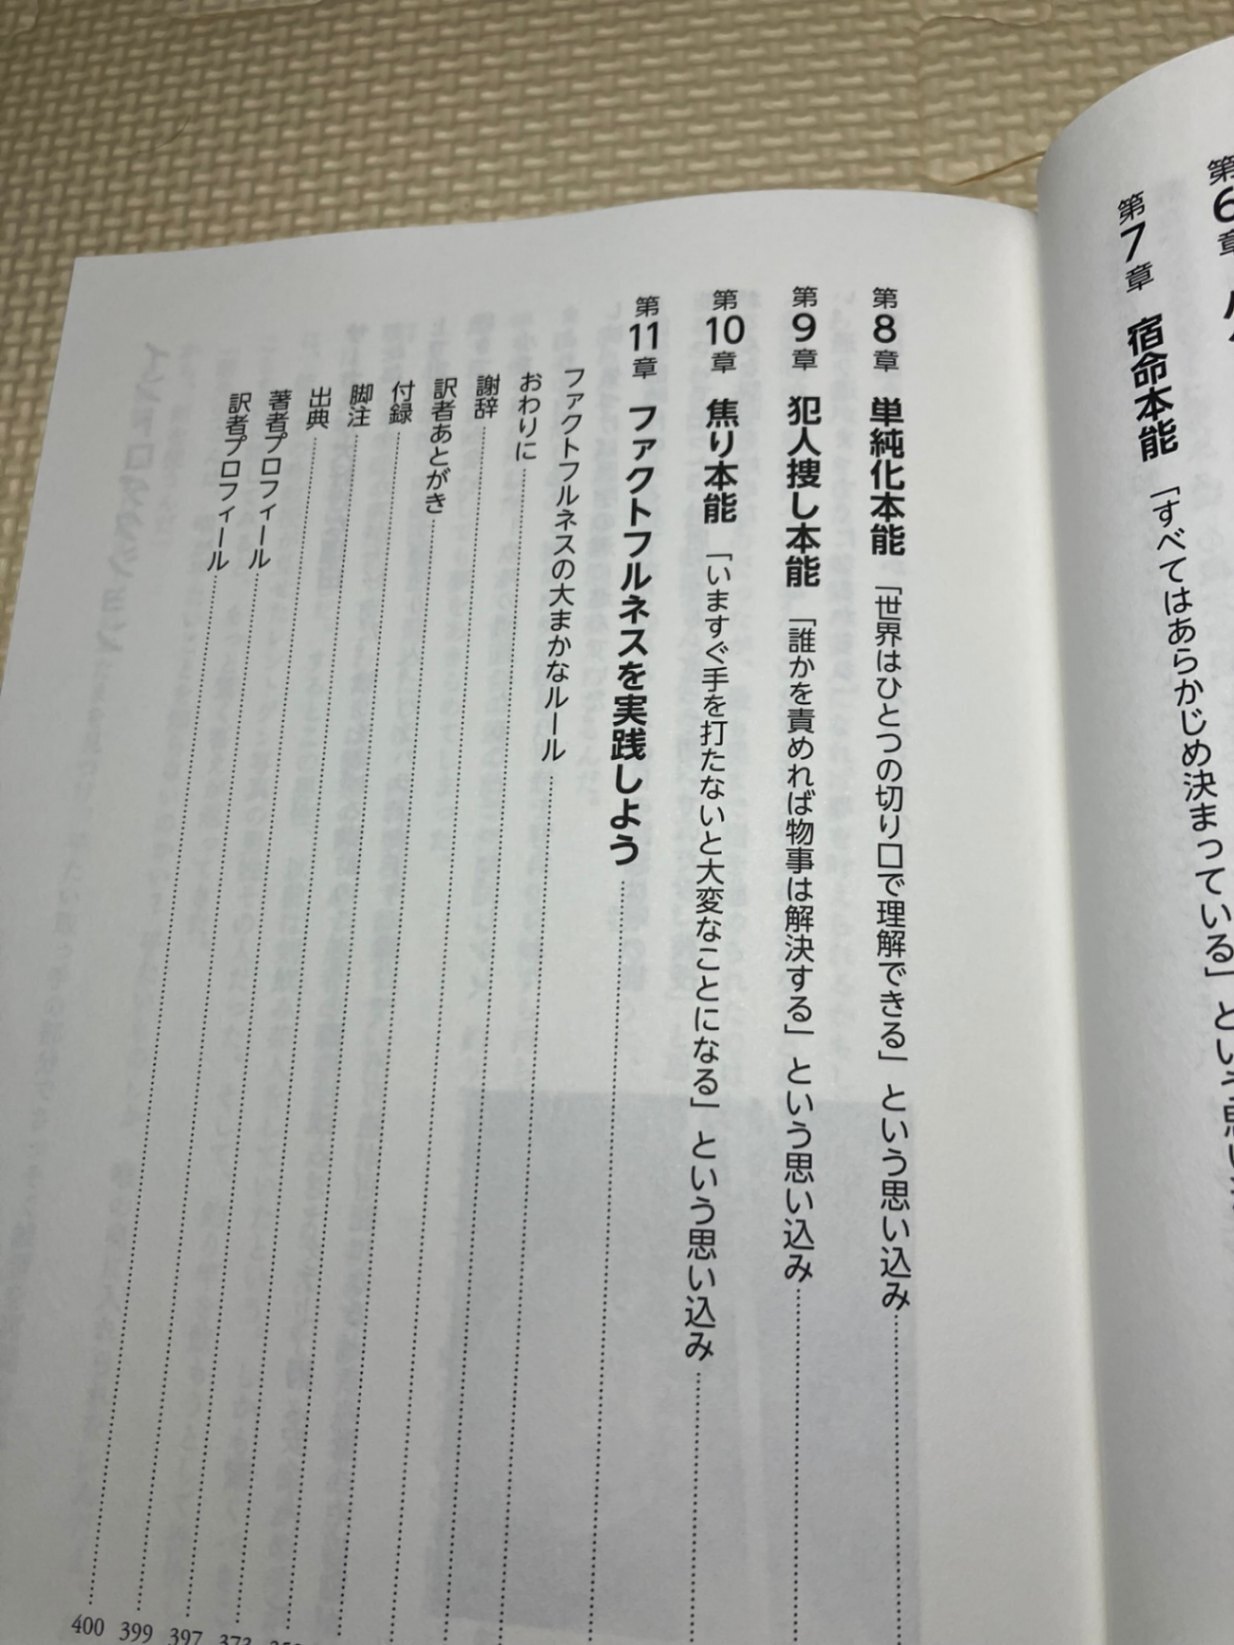 第6章
第7章 宿命本能 「すべてはあらかじめ決まっている」という思い
第8章 単純化本能 「世界はひとつの切り口で理解できる」という思い込み
第9章 犯人捜し本能 「誰かを責めれば物事は解決する」という思い込み
第10章 焦り本能 「いますぐ手を打たないと大変なことになる」という思い込み
第11章 ファクトフルネスを実践しよう
ファクトフルネスの大まかなルール
おわりに
謝辞
訳者あとがき
付録
脚注
出典 373
著者プロフィール 397
訳者プロフィール 399
400